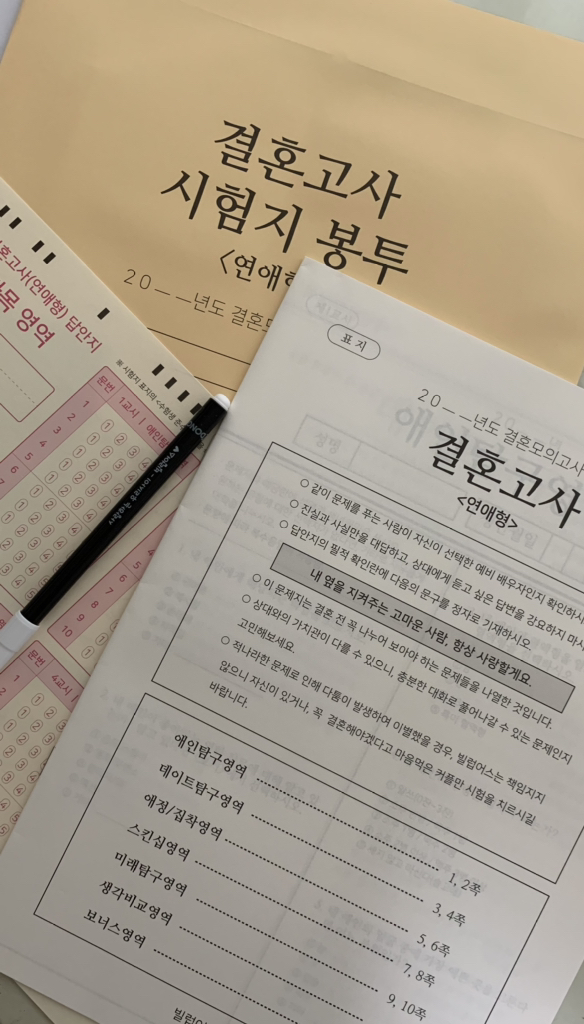 결혼고사
시험지 봉투
<연애형
20——년도 결혼모
혼고사(연애형) 답안지
과목 영역
※ 시험지 표지의 <수험생
문번
1교시
1
2
3
4
5
6
7
6
7
8
9
10
문번
4교시
1
2
3
4
5
표지
20——년도 결혼모의고사
결혼고사
<연애형>
○ 같이 문제를 푸는 사람이 자신이 선택한 예비 배우자인지 확인하시
○ 진실과 사실만을 대답하고, 상대에게 듣고 싶은 답변을 강요하지 마시
○ 답안지의 필적 확인란에 다음의 문구를 정자로 기재하시오.
내 옆을 지켜주는 고마운 사람, 항상 사랑할게요.
○ 이 문제지는 결혼 전 꼭 나누어 보아야 하는 문제들을 나열한 것입니다.
○ 상대와의 가치관이 다를 수 있으니, 충분한 대화로 풀어나갈 수 있는 문제인지
고민해보세요.
○ 적나라한 문제로 인해 다툼이 발생하여 이별했을 경우, 빌럽어스는 책임지지
않으니 자신이 있거나, 꼭 결혼해야겠다고 마음먹은 커플만 시험을 치르시길
바랍니다.
애인탐구영역 1, 2쪽
데이트탐구영역 3, 4쪽
애정/집착영역 5, 6쪽
스킨십영역 7, 8쪽
미래탐구영역 9, 10쪽
생각비교영역
보너스영역
빌럽어